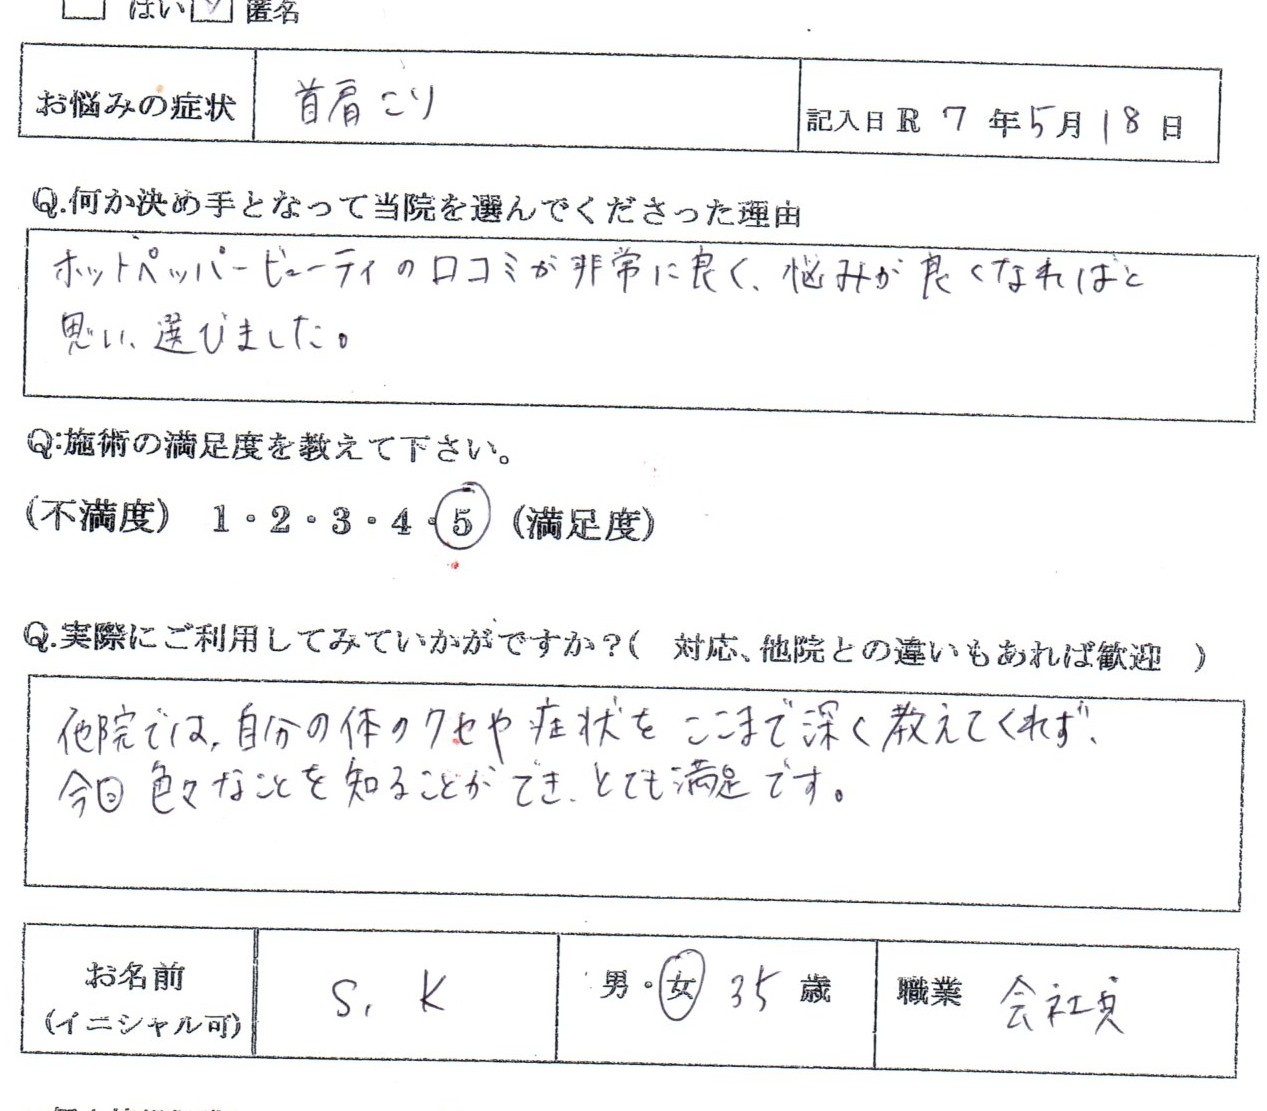 はい 匿名
お悩みの症状 首肩こり 記入日 R 7 年 5 月 18 日
Q.何か決め手となって当院を選んでくださった理由
ホットペッパービューティの口コミが非常に良く、悩みが良くなればと
思い、選びました。
Q:施術の満足度を教えて下さい。
(不満度) 1・2・3・4・5 (満足度)
Q.実際にご利用してみていかがですか?( 対応、他院との違いもあれば歓迎 )
他院では、自分の体のクセや症状をここまで深く教えてくれず、
今回色々なことを知ることができ、とても満足です。
お名前 S. K 男・女 35 歳 職業 会社員
(イニシャル可)